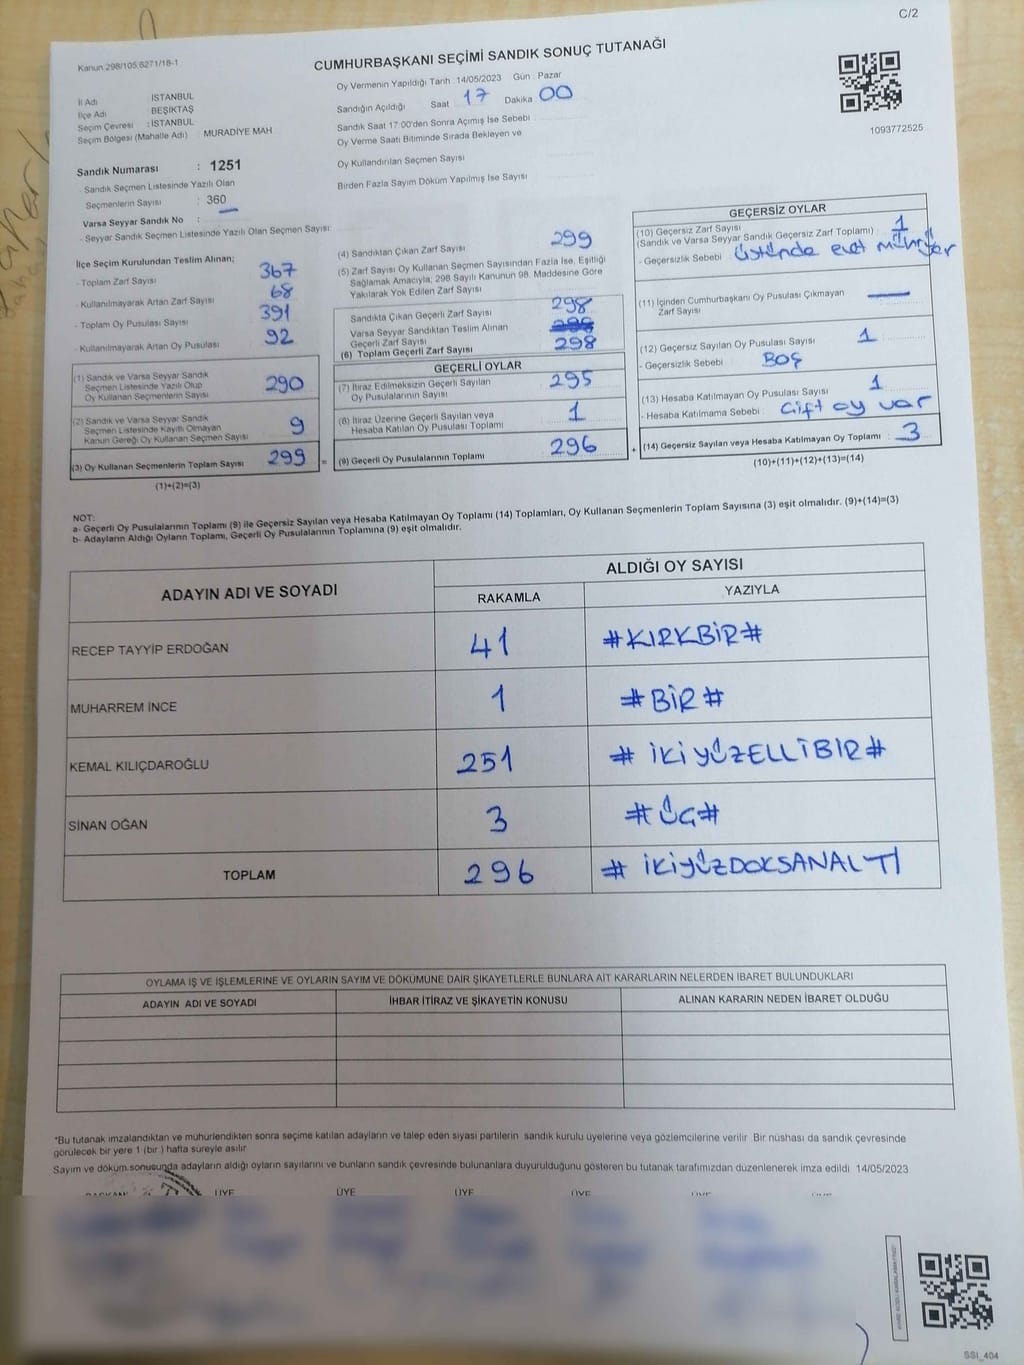 C/2
Kanun 298/105.6271/18-1
CUMHURBAŞKANI SEÇİMİ SANDIK SONUÇ TUTANAĞI
İl Adı İSTANBUL
İlçe Adı BEŞİKTAŞ
Seçim Çevresi : İSTANBUL
Seçim Bölgesi (Mahalle Adı) : MURADİYE MAH
Sandık Numarası : 1251
- Sandık Seçmen Listesinde Yazılı Olan
Seçmenlerin Sayısı : 360
Varsa Seyyar Sandık No :
- Seyyar Sandık Seçmen Listesinde Yazılı Olan Seçmen Sayısı:
Oy Vermenin Yapıldığı Tarih 14/05/2023 Gün Pazar
Sandığın Açıldığı Saat 17 Dakika 00
Sandık Saat 17:00'den Sonra Açımış İse Sebebi
Oy Verme Saati Bitiminde Sırada Bekleyen ve
Oy Kullandırılan Seçmen Sayısı
Birden Fazla Sayım Döküm Yapılmış İse Sayısı
1093772525
İlçe Seçim Kurulundan Teslim Alınan;
- Toplam Zarf Sayısı 367
- Kullanılmayarak Artan Zarf Sayısı 68
- Toplam Oy Pusulası Sayısı 391
- Kullanılmayarak Artan Oy Pusulası 92
(1) Sandık ve Varsa Seyyar Sandık
Seçmen Listesinde Yazılı Olup
Oy Kullanan Seçmenlerin Sayısı 290
(2) Sandık ve Varsa Seyyar Sandık
Seçmen Listesinde Kayıtlı Olmayan
Kanun Gereği Oy Kullanan Seçmen Sayısı 9
(3) Oy Kullanan Seçmenlerin Toplam Sayısı 299 =
(1)+(2)=(3)
(4) Sandıktan Çıkan Zarf Sayısı 299
(5) Zarf Sayısı Oy Kullanan Seçmen Sayısından Fazla İse, Eşitliği
Sağlamak Amacıyla; 298 Sayılı Kanunun 98. Maddesine Göre
Yakılarak Yok Edilen Zarf Sayısı
Sandıkta Çıkan Geçerli Zarf Sayısı 298
Varsa Seyyar Sandıktan Teslim Alınan
Geçerli Zarf Sayısı
(6) Toplam Geçerli Zarf Sayısı 298
GEÇERLİ OYLAR
(7) İtiraz Edilmeksizin Geçerli Sayılan
Oy Pusulasının Sayısı 295
(8) İtiraz Üzerine Geçerli Sayılan veya
Hesaba Katılan Oy Pusulası Toplamı 1
(9) Geçerli Oy Pusulalarının Toplamı 296 +
GEÇERSİZ OYLAR
(10) Geçersiz Zarf Sayısı 1
(Sandık ve Varsa Seyyar Sandık Geçersiz Zarf Toplamı) :
- Geçersizlik Sebebi : üstünde evet mühür
(11) İçinden Cumhurbaşkanı Oy Pusulası Çıkmayan
Zarf Sayısı
(12) Geçersiz Sayılan Oy Pusulası Sayısı 1
- Geçersizlik Sebebi : BOŞ
(13) Hesaba Katılmayan Oy Pusulası Sayısı 1
- Hesaba Katılmama Sebebi : çift oy var
(14) Geçersiz Sayılan veya Hesaba Katılmayan Oy Toplamı : 3
(10)+(11)+(12)+(13)=(14)
NOT:
a- Geçerli Oy Pusulalarının Toplamı (9) ile Geçersiz Sayılan veya Hesaba Katılmayan Oy Toplamı (14) Toplamları, Oy Kullanan Seçmenlerin Toplam Sayısına (3) eşit olmalıdır. (9)+(14)=(3)
b- Adayların Aldığı Oyların Toplamı, Geçerli Oy Pusulalarının Toplamına (9) eşit olmalıdır.
ADAYIN ADI VE SOYADI ALDIĞI OY SAYISI
RAKAMLA YAZIYLA
RECEP TAYYİP ERDOĞAN 41 #KIRKBİR#
MUHARREM İNCE 1 #BİR#
KEMAL KILIÇDAROĞLU 251 # İKİYÜZELLİBİR#
SİNAN OĞAN 3 #ÜÇ#
TOPLAM 296 # İKİYÜZDOKSANALTI
OYLAMA İŞ VE İŞLEMLERİNE VE OYLARIN SAYIM VE DÖKÜMÜNE DAİR ŞİKAYETLERLE BUNLARA AİT KARARLARIN NELERDEN İBARET BULUNDUKLARI
ADAYIN ADI VE SOYADI İHBAR İTİRAZ VE ŞİKAYETİN KONUSU ALINAN KARARIN NEDEN İBARET OLDUĞU
*Bu tutanak imzalandıktan ve mühürlendikten sonra seçime katılan adayların ve talep eden siyasi partilerin sandık kurulu üyelerine veya gözlemcilerine verilir Bir nüshası da sandık çevresinde
görülecek bir yere 1 (bir ) hafta süreyle asılır
Sayım ve döküm sonucunda adayların aldığı oyların sayılarını ve bunların sandık çevresinde bulunanlara duyurulduğunu gösteren bu tutanak tarafımızdan düzenlenerek imza edildi 14/05/2023
BAŞKAN ÜYE ÜYE ÜYE ÜYE ÜYE ÜYE
SSİ_404